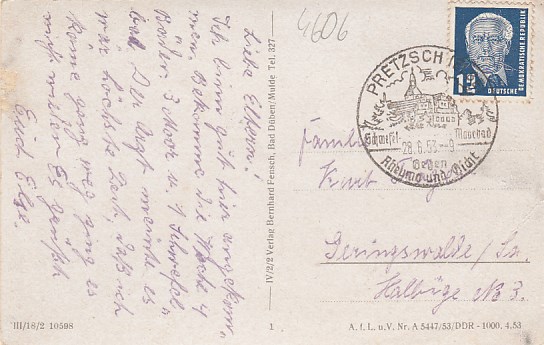 4606
Liebe Eltern!
Ich bin gut hier angekom-
men. Bekomme die Woche 4
Bäder 3 Moor u. 1 Schwefel-
bad. Der Arzt meinte es
wär höchste Zeit, daß ich
käme ganz weg ging es
nicht wieder. Es grüßt
Euch Else.
III/18/2 10598
IV/2/2 Verlag Bernhard Fensch, Bad Düben/Mulde Tel. 327
1
12
DEUTSCHE
DEMOKRATISCHE REPUBLIK
PRETZSCH
Schwefel- Moorbad
28.6.53.-9
Gegen
Rheuma und Gicht
Familie
Kurt
Geringswalde/Sa.
Nr. 3.
A. f. L. u. V. Nr. A 5447/53/DDR - 1000. 4.53